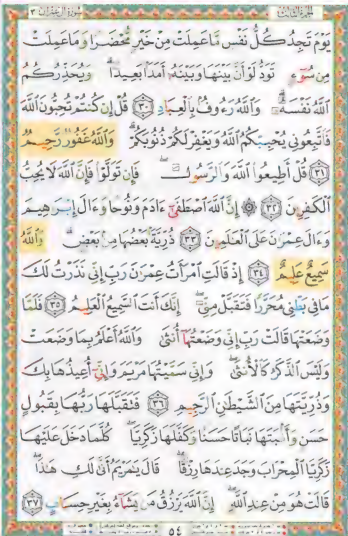 الجزء الثالث
سورة آل عمران ٣
يَوْمَ تَجِدُ كُلُّ نَفْسٍ مَّا عَمِلَتْ مِنْ خَيْرٍ مُّحْضَرًا وَمَا عَمِلَتْ
مِن سُوٓءٍ تَوَدُّ لَوْ أَنَّ بَيْنَهَا وَبَيْنَهُۥٓ أَمَدًۢا بَعِيدًا وَيُحَذِّرُكُمُ
ٱللَّهُ نَفْسَهُۥ وَٱللَّهُ رَءُوفٌۢ بِٱلْعِبَادِ ٣٠ قُلْ إِن كُنتُمْ تُحِبُّونَ ٱللَّهَ
فَٱتَّبِعُونِى يُحْبِبْكُمُ ٱللَّهُ وَيَغْفِرْ لَكُمْ ذُنُوبَكُمْ وَٱللَّهُ غَفُورٌ رَّحِيمٌ
٣١ قُلْ أَطِيعُوا۟ ٱللَّهَ وَٱلرَّسُولَ فَإِن تَوَلَّوْا۟ فَإِنَّ ٱللَّهَ لَا يُحِبُّ
ٱلْكَٰفِرِينَ ٣٢ ۞ إِنَّ ٱللَّهَ ٱصْطَفَىٰٓ ءَادَمَ وَنُوحًا وَءَالَ إِبْرَٰهِيمَ
وَءَالَ عِمْرَٰنَ عَلَى ٱلْعَٰلَمِينَ ٣٣ ذُرِّيَّةًۢ بَعْضُهَا مِنۢ بَعْضٍ وَٱللَّهُ
سَمِيعٌ عَلِيمٌ ٣٤ إِذْ قَالَتِ ٱمْرَأَتُ عِمْرَٰنَ رَبِّ إِنِّى نَذَرْتُ لَكَ
مَا فِى بَطْنِى مُحَرَّرًا فَتَقَبَّلْ مِنِّىٓ إِنَّكَ أَنتَ ٱلسَّمِيعُ ٱلْعَلِيمُ ٣٥ فَلَمَّا
وَضَعَتْهَا قَالَتْ رَبِّ إِنِّى وَضَعْتُهَآ أُنثَىٰ وَٱللَّهُ أَعْلَمُ بِمَا وَضَعَتْ
وَلَيْسَ ٱلذَّكَرُ كَٱلْأُنثَىٰ وَإِنِّى سَمَّيْتُهَا مَرْيَمَ وَإِنِّىٓ أُعِيذُهَا بِكَ
وَذُرِّيَّتَهَا مِنَ ٱلشَّيْطَٰنِ ٱلرَّجِيمِ ٣٦ فَتَقَبَّلَهَا رَبُّهَا بِقَبُولٍ
حَسَنٍ وَأَنۢبَتَهَا نَبَاتًا حَسَنًا وَكَفَّلَهَا زَكَرِيَّا كُلَّمَا دَخَلَ عَلَيْهَا
زَكَرِيَّا ٱلْمِحْرَابَ وَجَدَ عِندَهَا رِزْقًا قَالَ يَٰمَرْيَمُ أَنَّىٰ لَكِ هَٰذَا
قَالَتْ هُوَ مِنْ عِندِ ٱللَّهِ إِنَّ ٱللَّهَ يَرْزُقُ مَن يَشَآءُ بِغَيْرِ حِسَابٍ ٣٧
٥٤